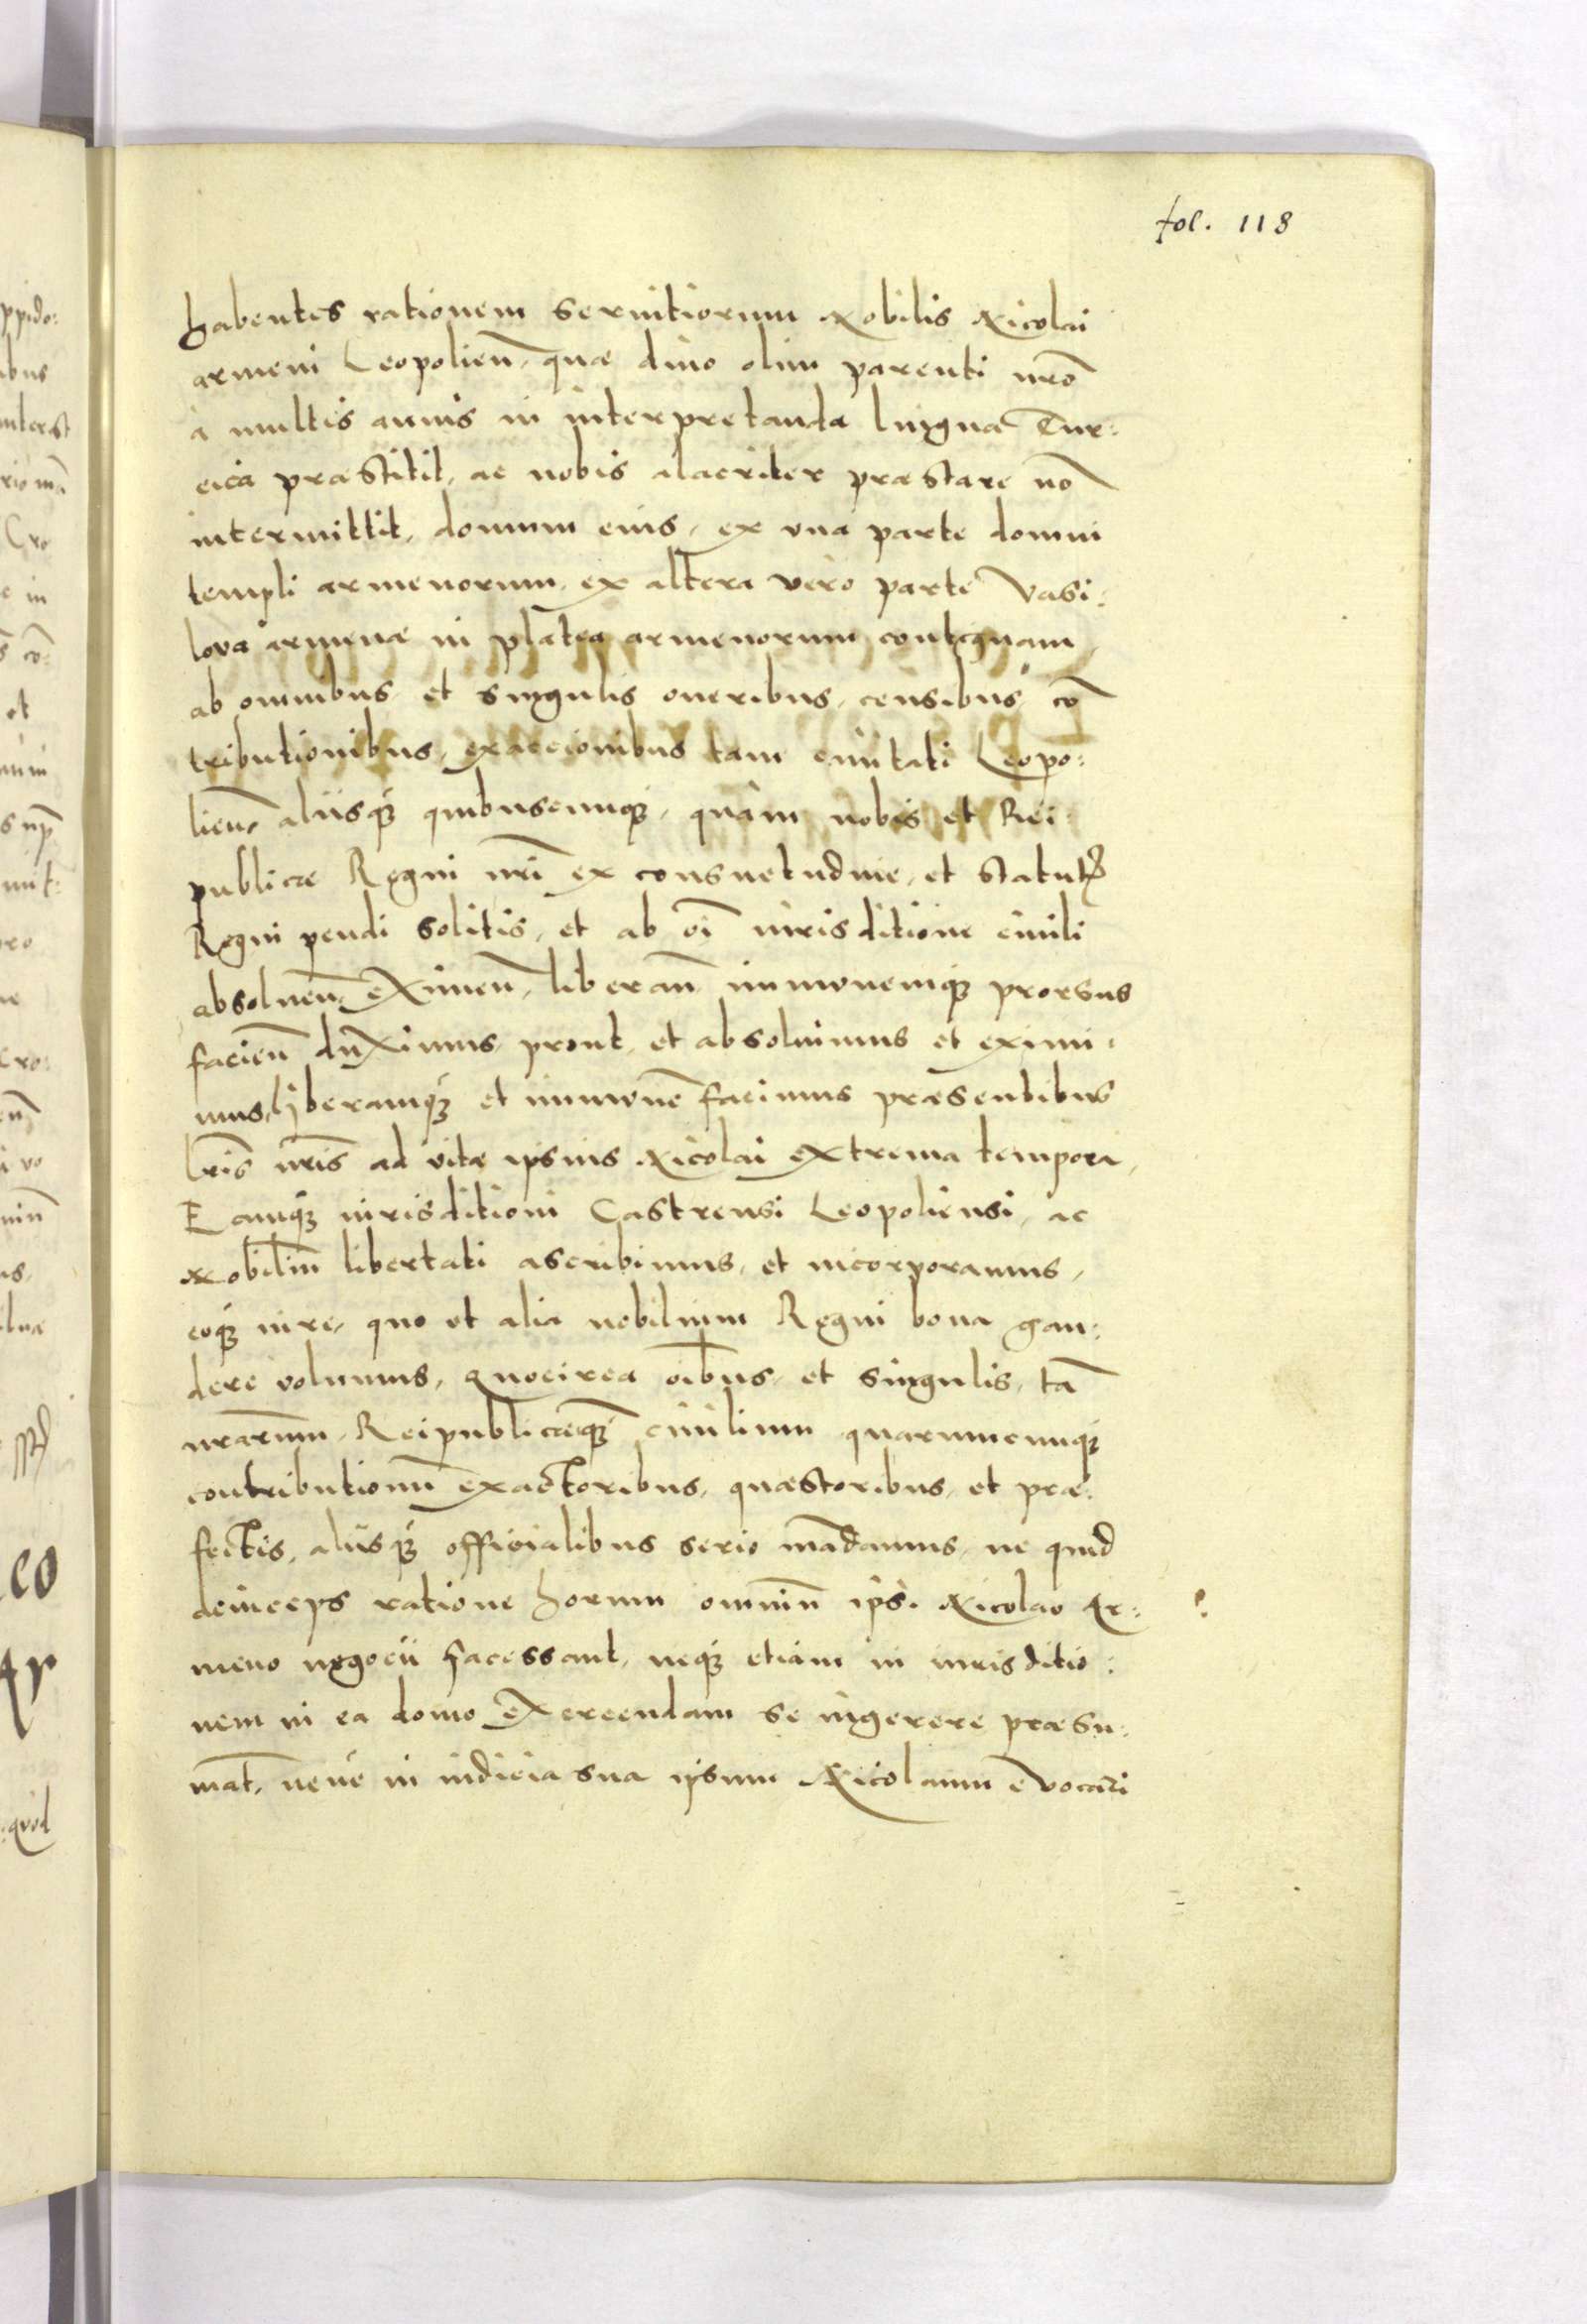 fol. 118
habentes rationem seruitiorum Nobilis Nicolai
armeni Leopolien̄, quæ diuo olim parenti nr̄o
à multis annis in interpretanda lingua Tur:
cica præstitit, ac nobis alacriter præstare nō
intermittit, domum eius, ex vna parte domui
templi armenorum, ex altera vero parte Vasi:
lova armenæ in platea armenorum contiguam,
ab omnibus et singulis oneribus, censibus, cō
tributionibus, exaccionibus tam ciuitati Leopo:
lien̄, aliisqꝫ quibuscunqꝫ, quàm nobis et Rei:
publicæ Regni nr̄i ex consuetudine, et statutꝭ
Regni pendi solitis, et ab oī iurisditione ciuili
absoluen̄, eximen̄, liberan̄, immunemqꝫ prorsus
facien̄ duximus, prout et absoluimus et eximi:
mus, liberamqꝫ et immunē facimus præsentibus
lr̄is nr̄is ad vitæ ipsius Nicolai extrema tempora,
Eamqꝫ iurisditioni Castrensi Leopoliensi, ac
Nobiliū libertati ascribimus, et incorporamus,
eoqꝫ iure, quo et alia nobilium Regni bona gau:
dere volumus, Quocirca oībus, et singulis, tā
nrārum, Reipublicæqꝫ ciuilium quarumcunqꝫ
contributionū exactoribus, quæstoribus, et præ:
fectis, aliisqꝫ officialibus serio mādamus, ne quid
deinceps ratione horum omniū ips. Nicolao Ar:
meno negocii facessant, neqꝫ etiam in iurisditio:
nem in ea domo exercendam se ingerere præsu:
māt, neue in iudicia sua ipsum Nicolaum euocari